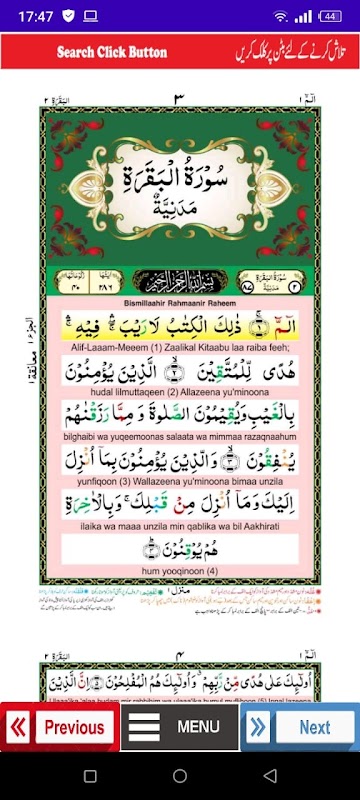 17:47
44
Search Click Button
تلاش کرنے کے لئے بٹن پر کلک کریں
البقرة ٢
٣
الٓمّٓ ١
سُوْرَةُ الْبَقَرَةِ
مَدَنِيَّةٌ
اٰیٰتُهَا
٤٠
٢٨٦
بِسْمِ اللّٰهِ الرَّحْمٰنِ الرَّحِيْمِ
سُوْرَةُ الْبَقَرَةِ
مَدَنِيَّةٌ
٨٧
٢
Bismillaahir Rahmaanir Raheem
الٓمّٓ ۚ﴿١﴾ ذٰلِكَ الْكِتٰبُ لَا رَيْبَ ۛۚ فِيْهِ ۛۚ
Alif-Laaam-Meeem (1) Zaalikal Kitaabu laa raiba feeh;
هُدًى لِّلْمُتَّقِيْنَ ﴿٢﴾ الَّذِيْنَ يُؤْمِنُوْنَ
hudal lilmuttaqeen (2) Allazeena yu'minoona
بِالْغَيْبِ وَيُقِيْمُوْنَ الصَّلٰوةَ وَمِمَّا رَزَقْنٰهُمْ
bilghaibi wa yuqeemoonas salaata wa mimmaa razaqnaahum
يُنْفِقُوْنَ ﴿٣﴾ وَالَّذِيْنَ يُؤْمِنُوْنَ بِمَآ اُنْزِلَ
yunfiqoon (3) Wallazeena yu'minoona bimaa unzila
اِلَيْكَ وَمَآ اُنْزِلَ مِنْ قَبْلِكَ ۚ وَبِالْاٰخِرَةِ
ilaika wa maaa unzila min qablika wa bil Aakhirati
هُمْ يُوْقِنُوْنَ ﴿٤﴾
hum yooqinoon (4)
منزل ١
البقرة ٢
٤
الٓمّٓ ١
اُولٰٓئِكَ عَلٰى هُدًى مِّنْ رَّبِّهِمْ ۙ وَاُولٰٓئِكَ هُمُ الْمُفْلِحُوْنَ ﴿٥﴾ اِنَّ الَّذِيْنَ
Previous
MENU
Next